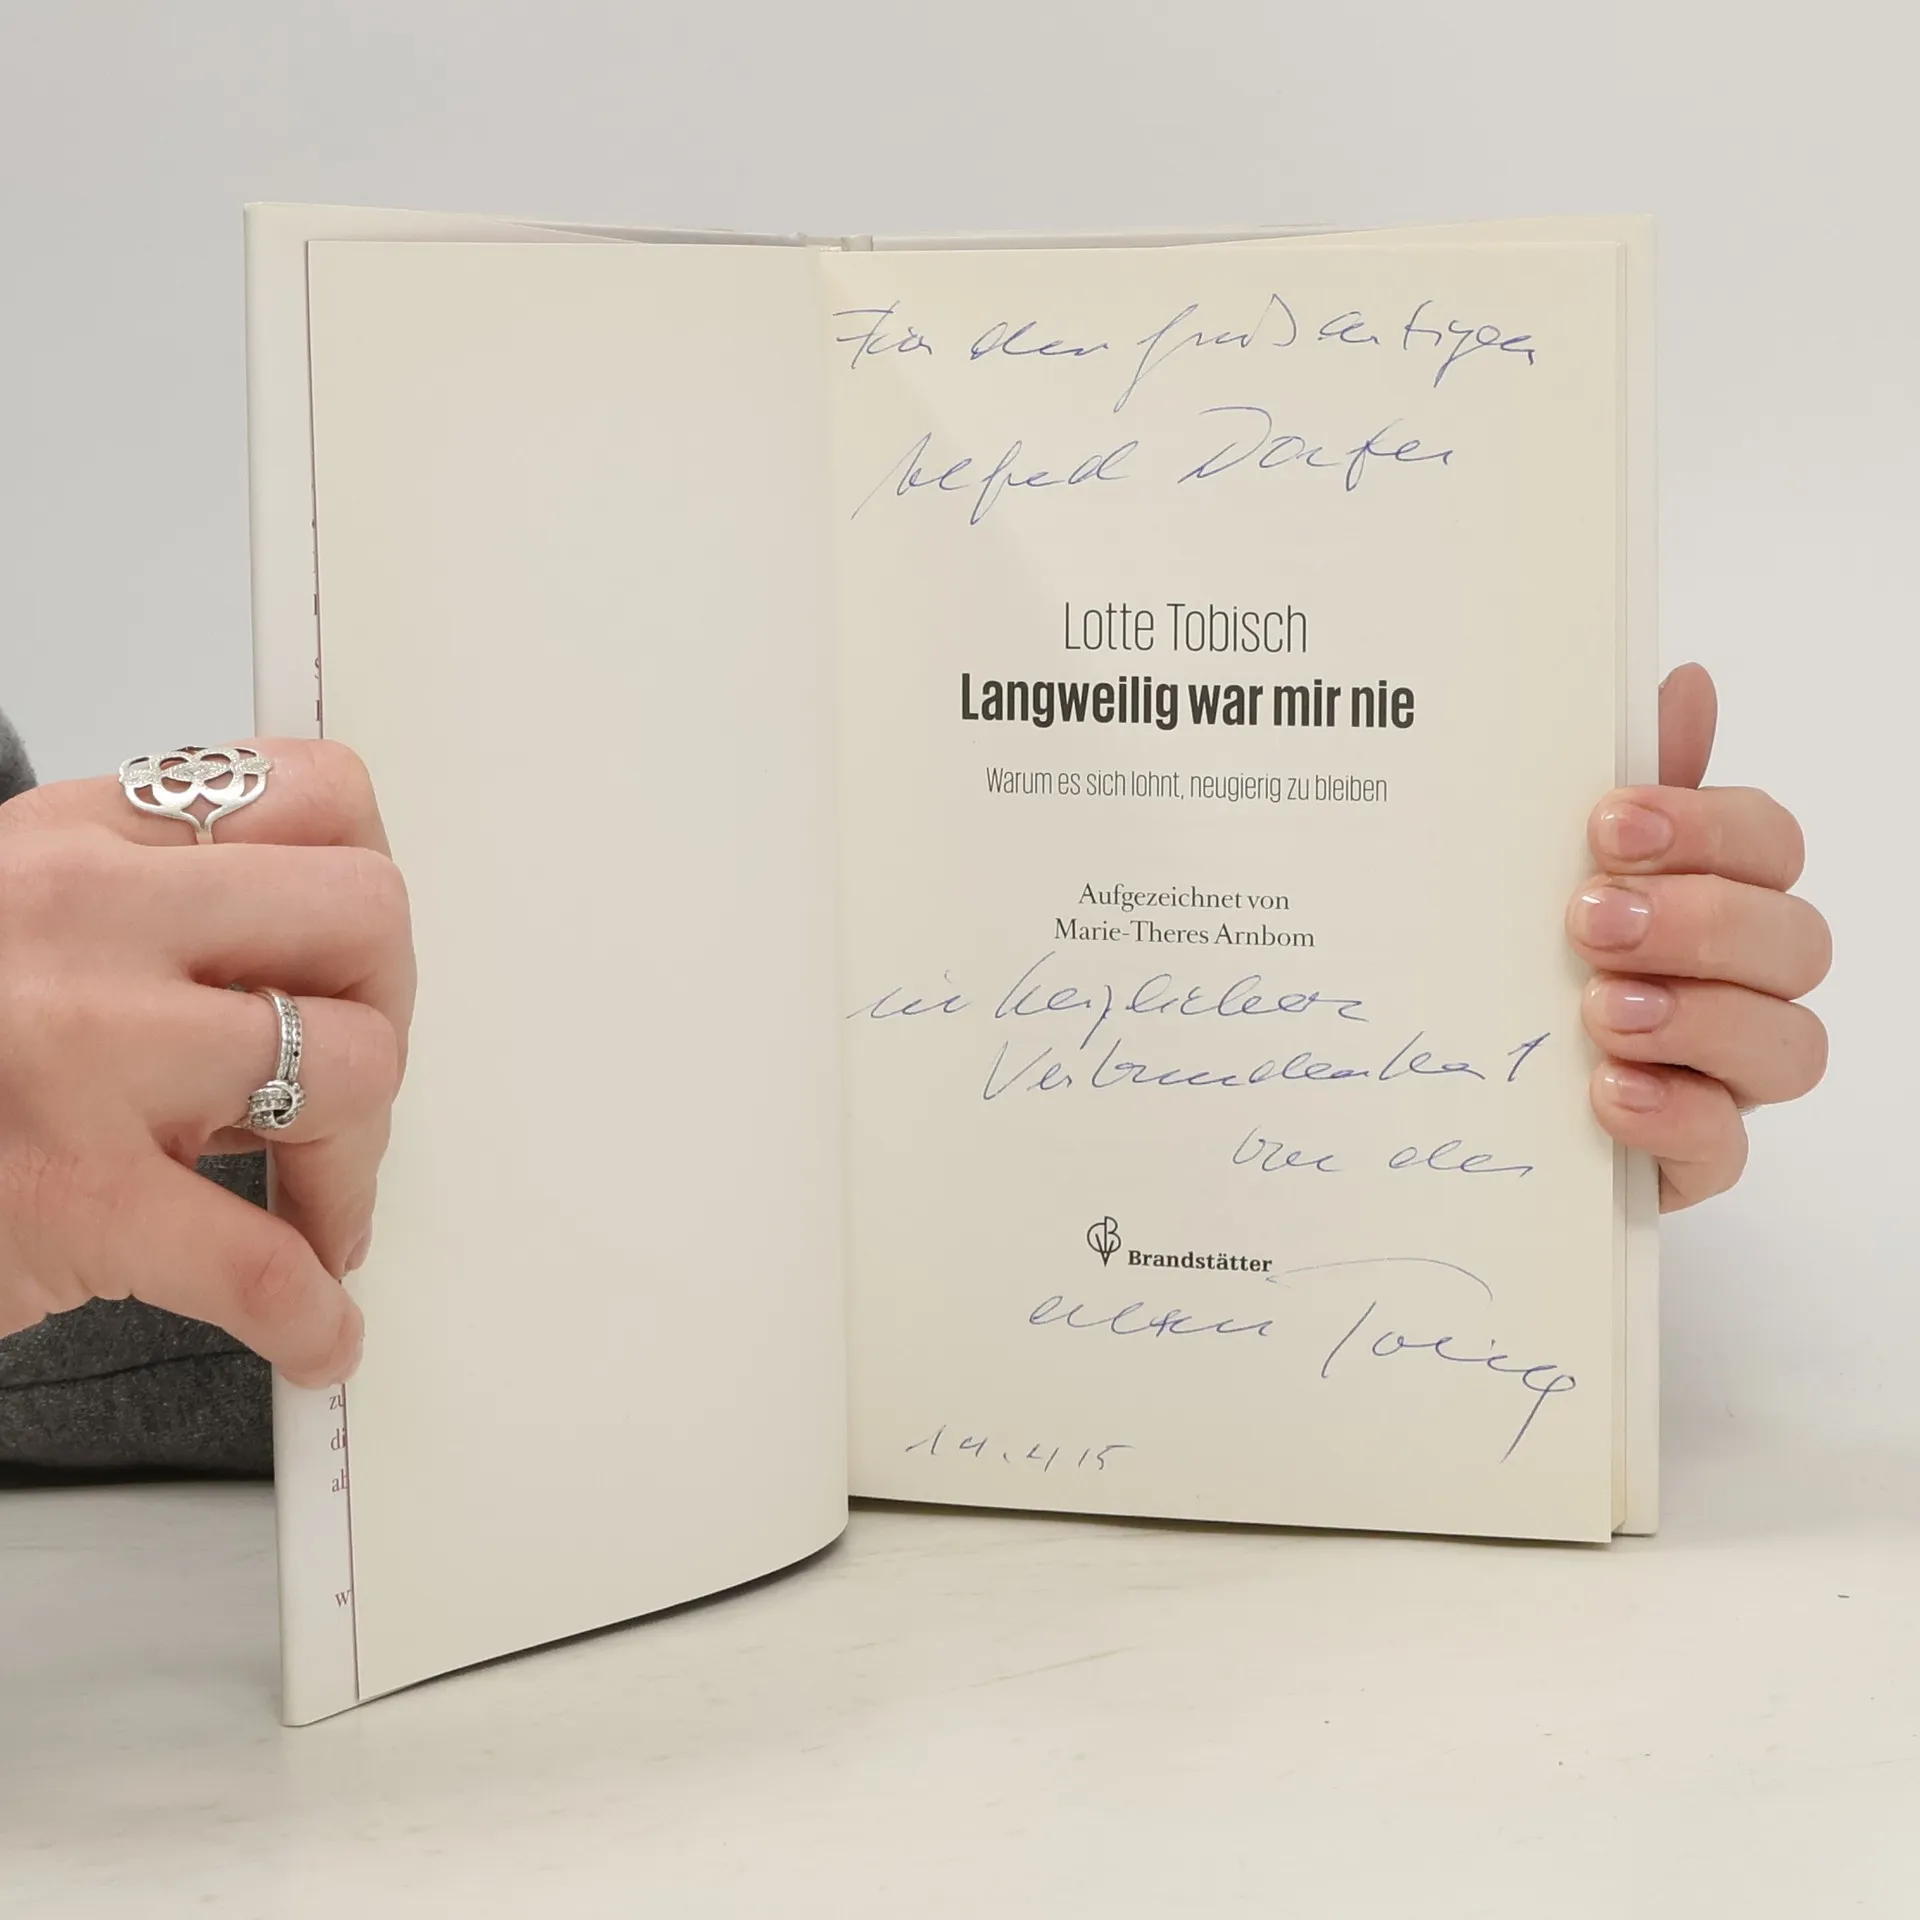 Für den großartigen
Alfred Dorfer
Lotte Tobisch
Langweilig war mir nie
Warum es sich lohnt, neugierig zu bleiben
Aufgezeichnet von
Marie-Theres Arnbom
in herzlicher
Verbundenheit
von der
Brandstätter
alten Tobisch
14.4.15
zu
di
ab
w